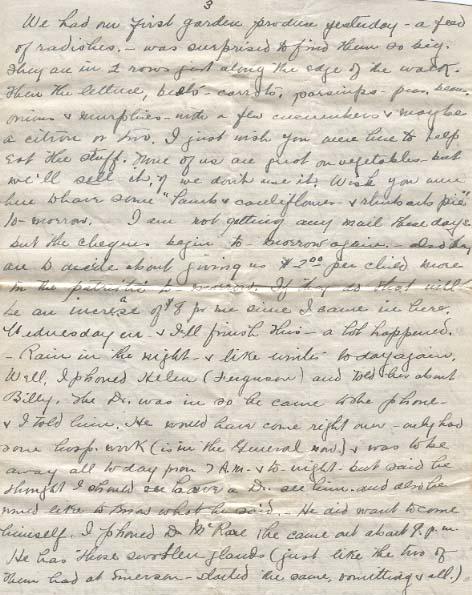 3
We had our first garden produce yesterday - a feed
of radishes. - was surprised to find them so big.
They are in 2 rows just along the edge of the walk.
Then the lettuce, beets - carrots, parsnips - peas, beans,
onions & murphies - with a few cucumbers & maybe
a citron or two. I just wish you were here to help
eat the stuff. None of us are great on vegetables - but
we'll sell it, if we don't use it. Wish you were
here to have some "lamb & cauliflower - & rhubarb pie"
to-morrow. I am not getting any mail these days
but the cheques begin to-morrow again. - also they
are to decide about giving us $2.00 per child more
in the patriotic to-morrow. If they do that will
be an increase of $8 for me since I came in here.
Wednesday eve - & I'll finish this - a lot happened.
- Rain in the night - & like winter to day again.
Well, I phoned Helen (Ferguson) and told her about
Billy. The Dr. was in so he came to the phone -
& I told him. He would have come right over - only had
some hosp. work (is in the General now) & was to be
away all to day from 7 A.M. - & to-night - but said he
thought I should have a Dr. see him - and also he
would like to know what he said. - He did want to come
himself. I phoned Dr. McRae & he came out about 9. p.m.
He has those swollen glands (just like the two of
them had at Emerson - started the same, vomiting & all.)